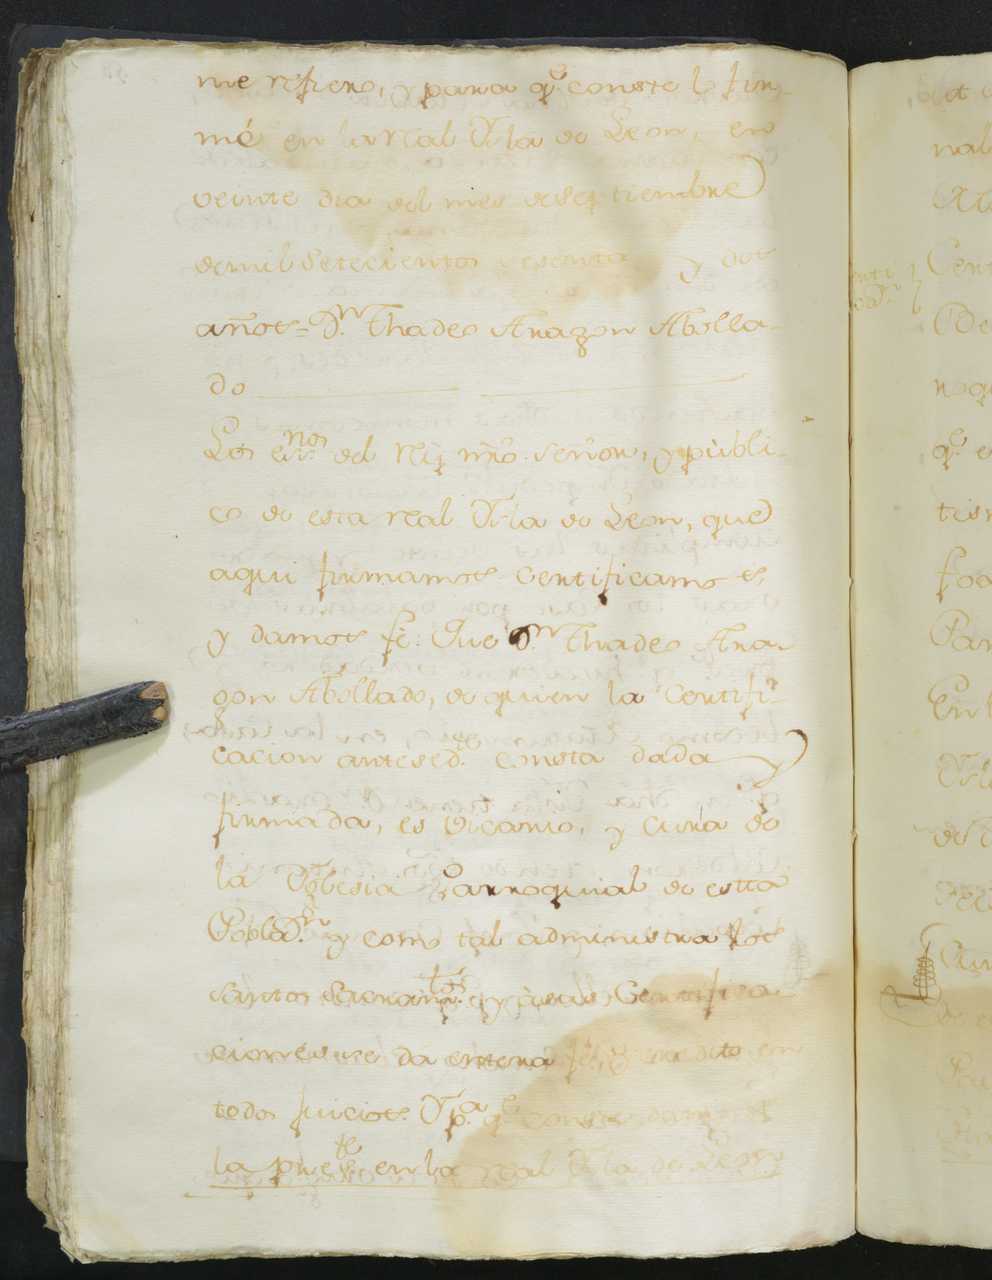 me refiero, y para q.e conste lo fir-
mé en la real Ysla de Leon, en
veinte dia del mes de Septiembre
de mil Setecientos sesenta y dos
años = D.n Thadeo Aragon Abolla-
do
Los ess.nos del Rey nrõ. señor, y públi-
co de esta real Ysla de Leon, que
aqui firmamos certificamos,
y damos fé: Que D.n Thadeo Ara-
gon Abollado, de quien la Certifi-
cacion anteced.te consta dada y
firmada, es Vicario, y Cura de
la Yglesia Parroquial de estta
Poblaz.n y como tal administra los
Santos Sacram.tos y à sus Certifica-
ciones se da entera fé, y credito en
todos juicios. Y p.a q.e conste damos
la pres.te en la real Ysla de Leon
q.e
tis
Par
En l
Cent
nal